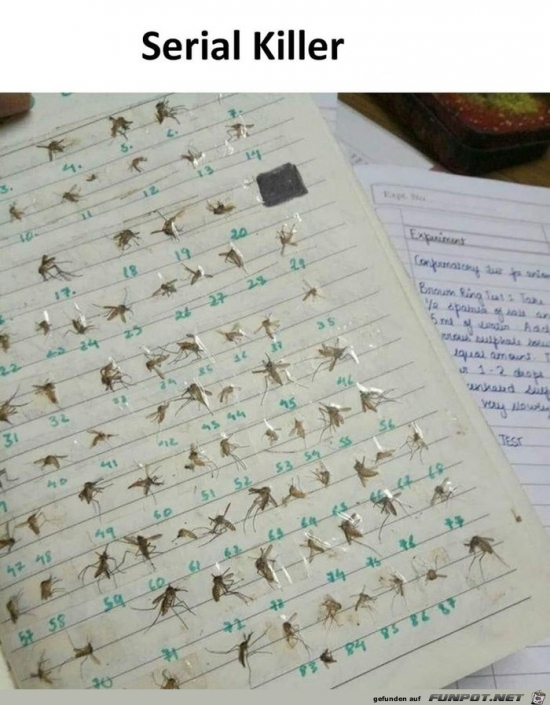 Serial Killer
3. 4. 5. 6. 7.
10. 11 12 13 14
17. 18 19 20
22 23 24 25 26 27 28 29
31 32 33 34 35 36 37 38
40 41 42 43 44 45 46
47 48 49 50 51 52 53 54 55 56
57 58 59 60 61 62 63 64 65 66 67 68
70 71 72 73 74 75 76 77
83 84 85 86 87
Expt. No.
Experiment
Confirmatory test for
Brown Ring Test : Take
1/2 spatula of salt an
5 ml of water. Add
sulphate solu
equal amount.
1-2 drops
very slowly
TEST
gefunden auf FUNPOT.NET